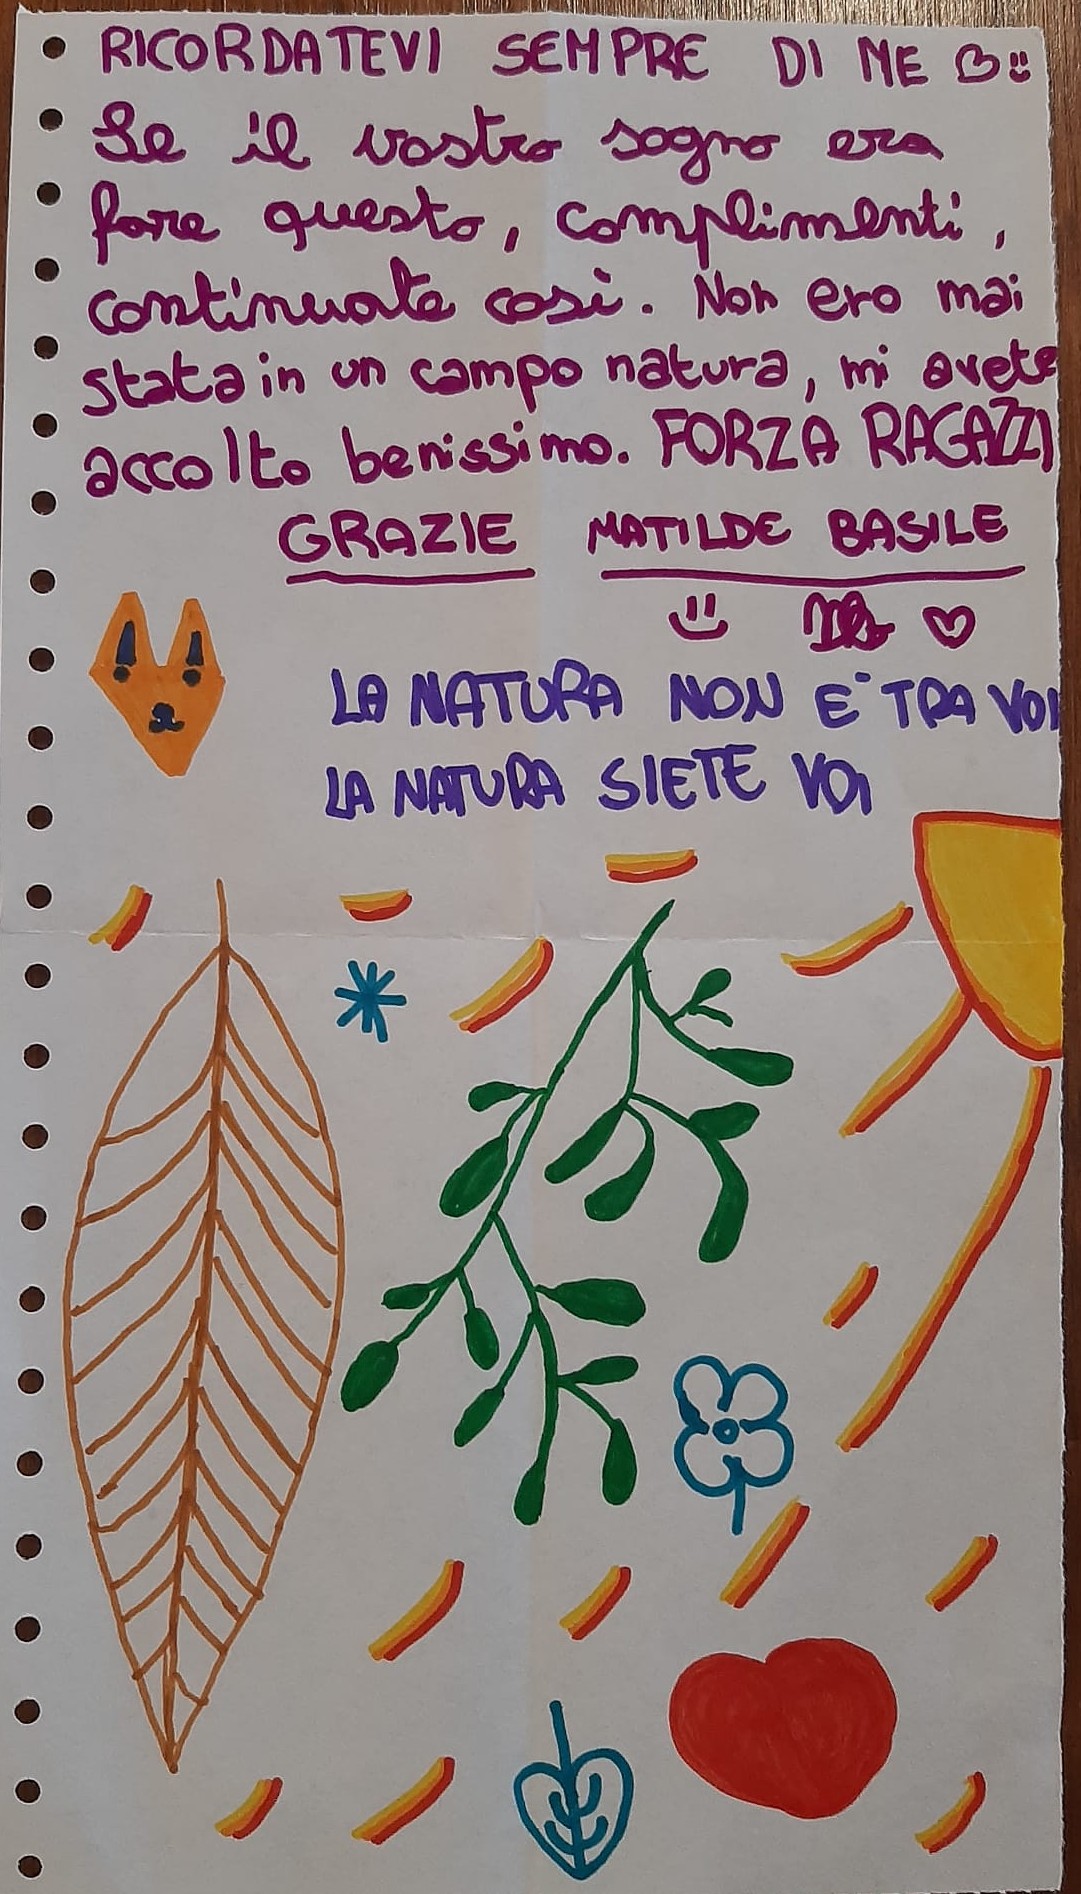 RICORDATEVI SEMPRE DI ME
Se il vostro sogno era
fare questo, complimenti,
continuate così. Non ero mai
stata in un campo natura, mi avete
accolto benissimo. FORZA RAGAZZI
GRAZIE MATILDE BASILE
LA NATURA NON È TRA VOI
LA NATURA SIETE VOI